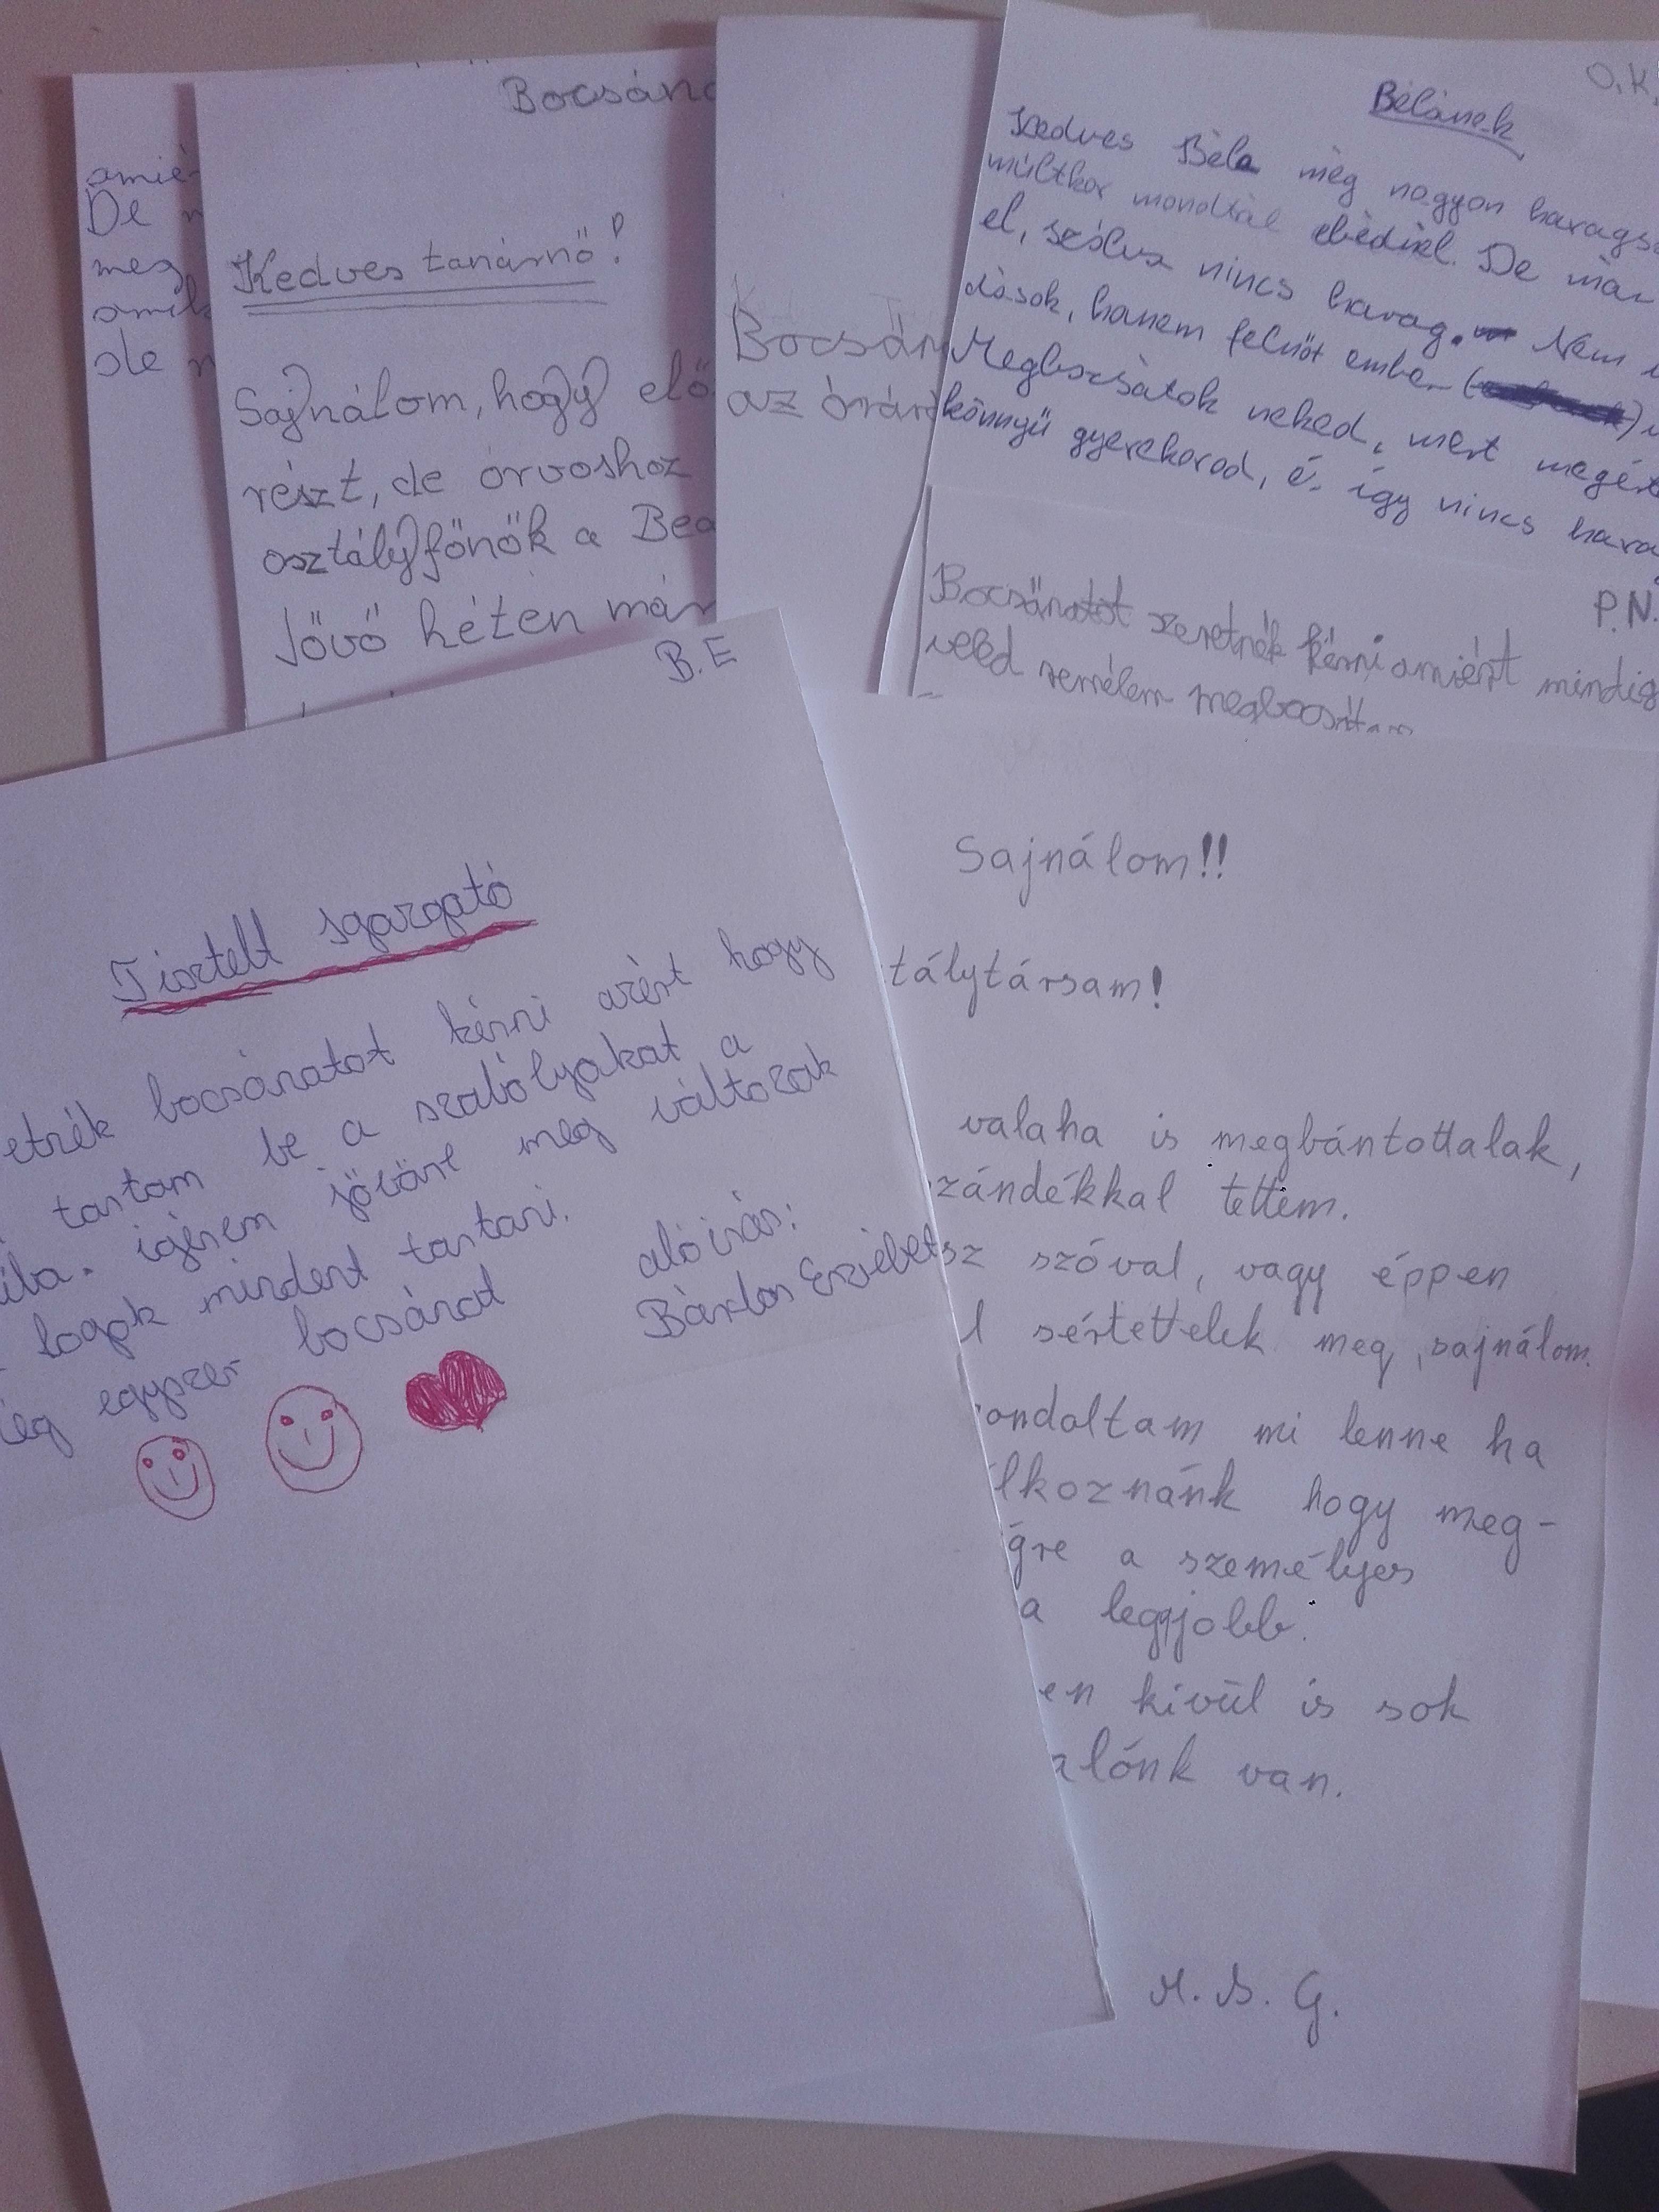 amié
De
meg
amik
de
Bocsán
Kedves tanárnő!
Sajnálom, hogy elő
részt, de orvoshoz
osztályfőnök a Bea
Jövő héten már
Bocsán
az órár
O.K.
Bélának
Kedves Béla még nagyon harags
múltkor mondtál ebédnél. De már
el, szólva nincs harag. Nem
dások, hanem felnőt ember
Megbocsátok neked, mert megért
könnyű gyerekorod, és így nincs hara
P.N.
Bocsánatot szeretnék kérni amiért mindig
veled remélem megbocsát
B.E
Tisztelt Igazgató
etnék bocsánatot kérni azért hogy
tartam be a szabályakat a
ába. igérem jövőre meg változok
fogok mindent tartani.
ég egyszer bocsánat
alóírás:
Bárdos Erzsébet
Sajnálom!!
tálytársam!
valaha is megbántottalak,
zándékkal tettem.
sz szóval, vagy éppen
l sértettelek meg, sajnálom.
ondoltam mi lenne ha
álkoznánk hogy meg-
gre a személyes
a legjobb.
en kivül is sok
alónk van.
M.B.G.